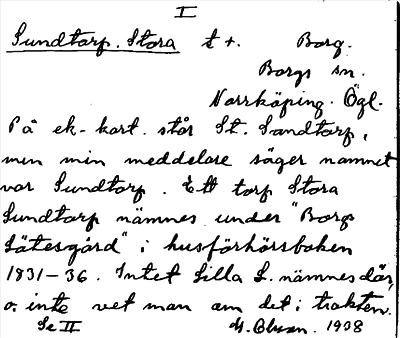 I
Sundtorp. Stora t +. Borg.
Borgs sn.
Norrköping. Ögl.
På ek-kart. står St. Sandtorp,
men min meddelare säger namnet
var Sundtorp. Ett torp Stora
Sundtorp nämnes under "Borgs
Sätesgård" i husförhörsboken
1831-36. Intet Lilla S. nämnes där,
o. inte vet man om det i trakten.
Se II M. Olsson. 1938